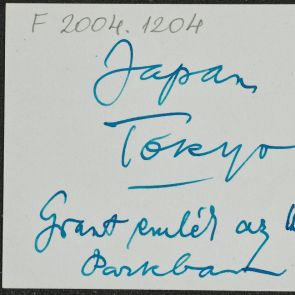 F 2004.1204
Japan
Tokyo
Grant emlék az
Parkban